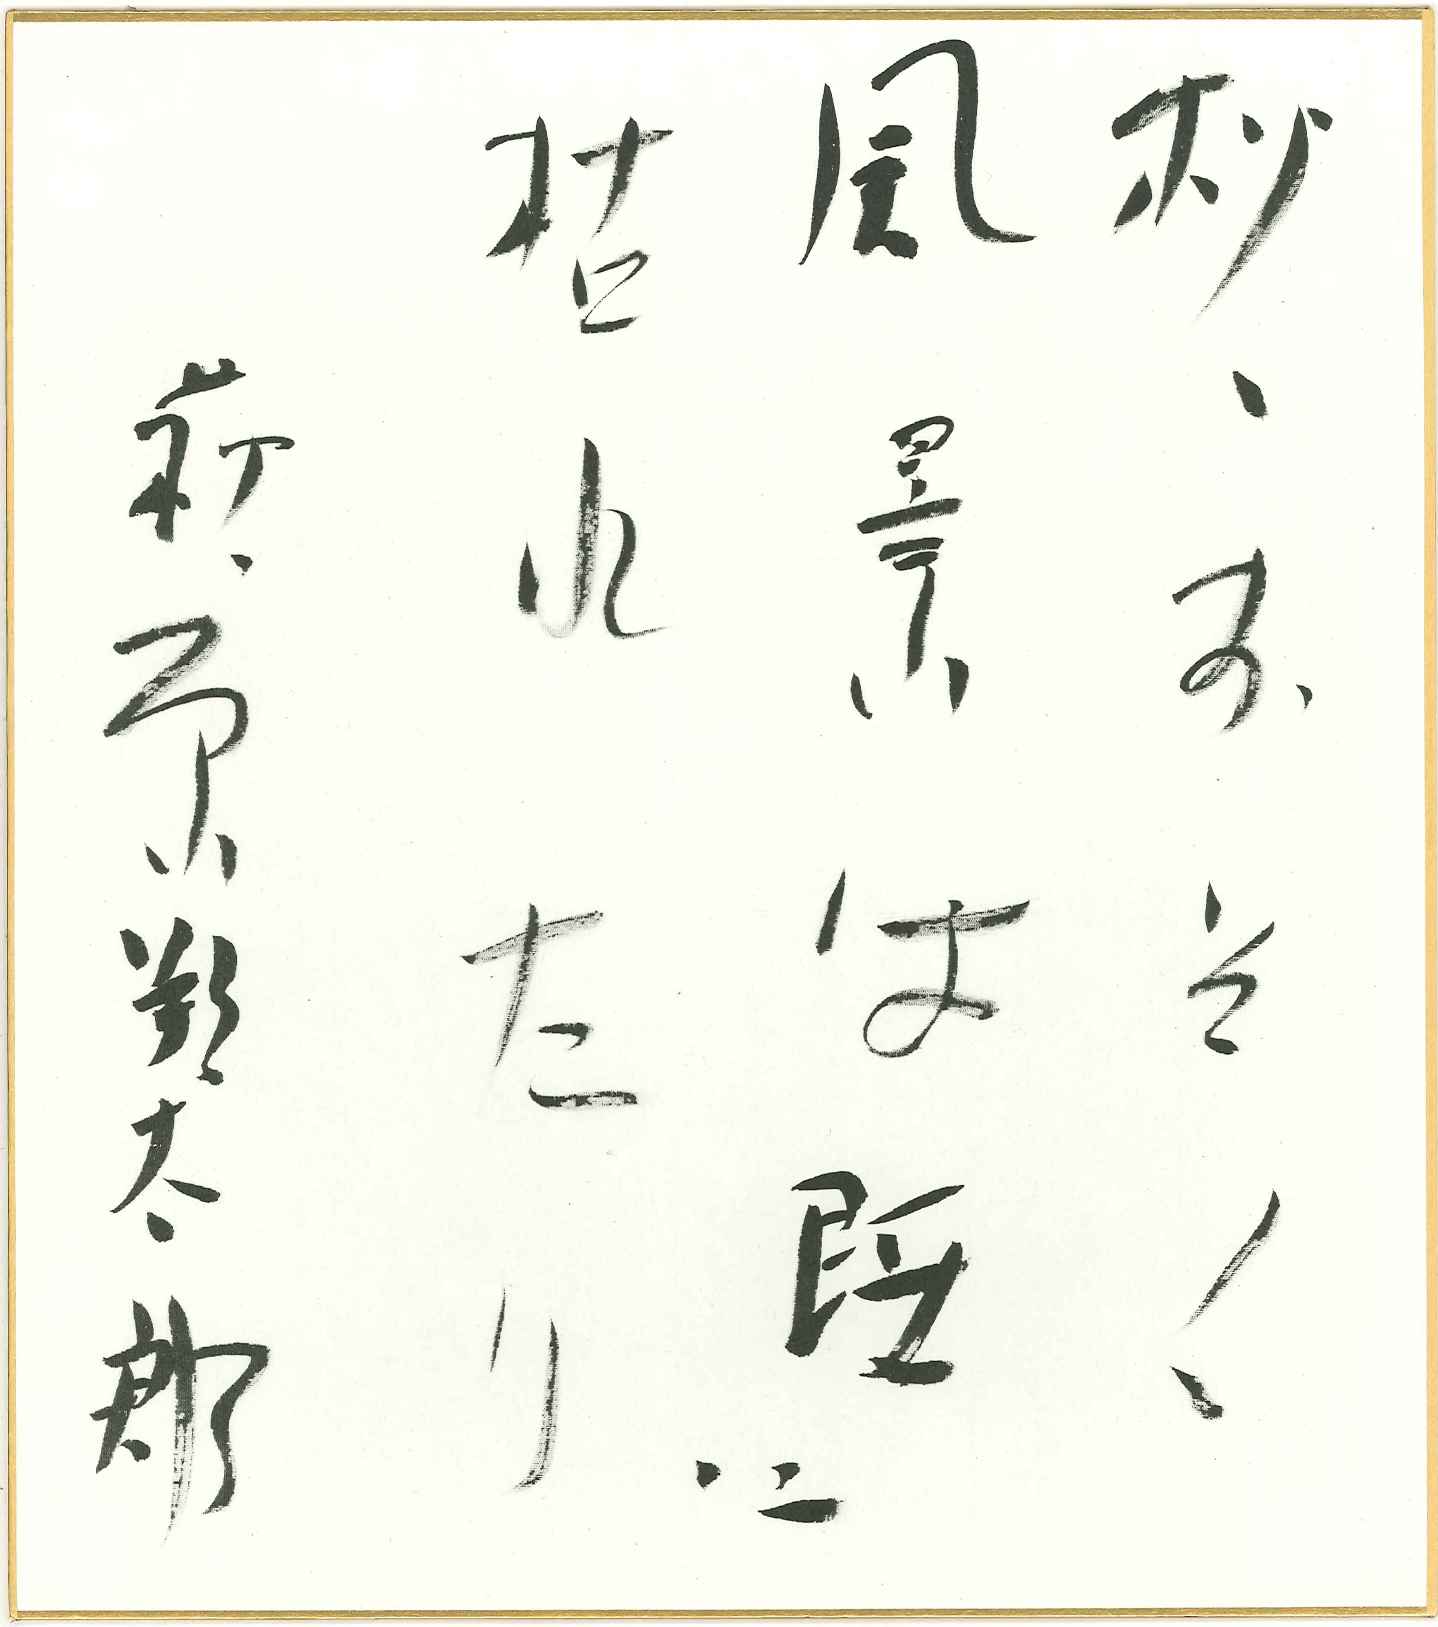 秋おそく
風景は既に
枯れたり
萩原朔太郎